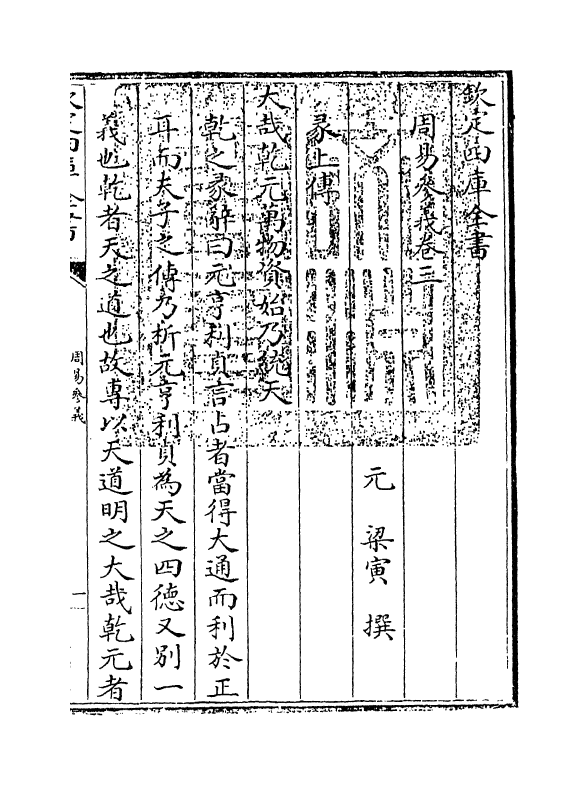 欽定四庫全書
周易參義卷三
元 梁寅 撰
彖上傳
大哉乾元萬物資始乃統天
乾之彖辭曰元亨利貞言占者當得大通而利於正
耳而夫子之傳乃析元亨利貞為天之四德又別一
義也乾者天之道也故專以天道明之大哉乾元者
周易參義
一